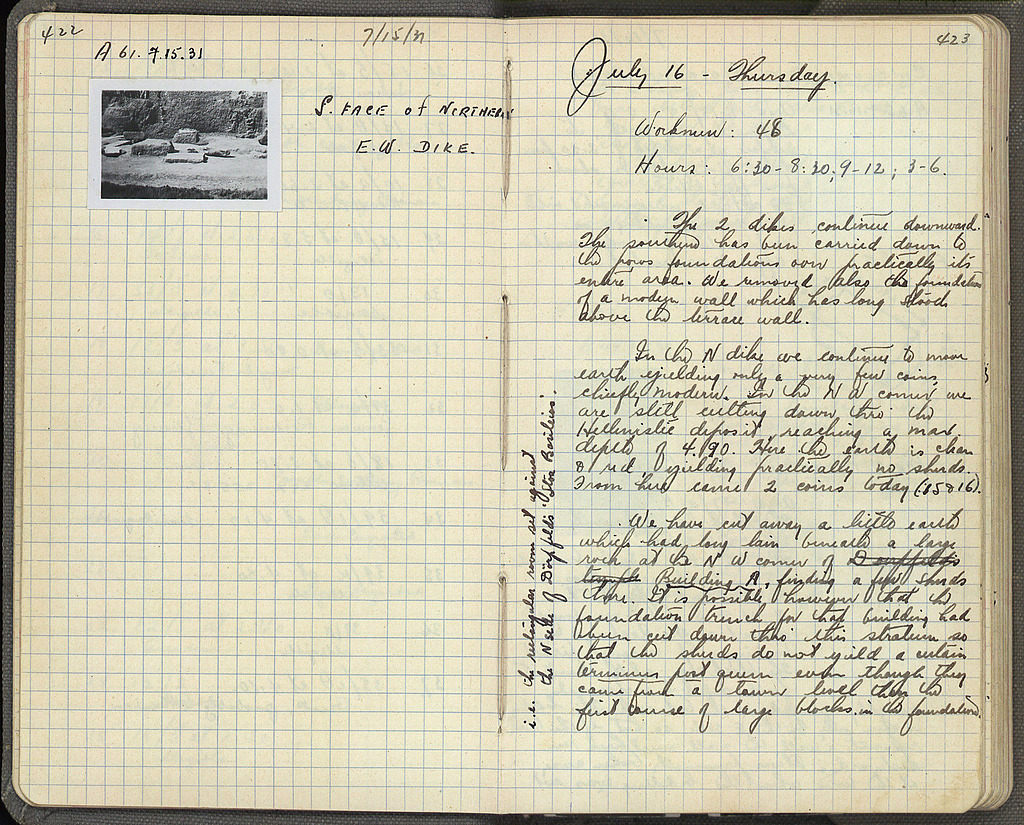 422
7/15/31
A 61. 7.15.31
S. FACE OF NORTHERN
E.W. DIKE.
423
July 16 - Thursday.
Workmen: 48
Hours: 6:30-8:30; 9-12; 3-6.
The 2 dikes continue downward.
The southern has been carried down to
the poros foundations over practically its
entire area. We removed also the foundation
of a modern wall which has long stood
above the terrace wall.
In the N dike we continue to move
earth yielding only a very few coins,
chiefly modern. In the N W corner we
are still cutting down thro' the
Hellenistic deposit, reaching a max.
depth of 4.90. Here the earth is clean
& red, yielding practically no sherds.
From here came 2 coins today (15 & 16).
We have cut away a little earth
which had long lain beneath a large
rock at the N W corner of Doerpfeld's
temple Building A, finding a few sherds
there. It is possible however that the
foundation trench for that building had
been cut down thro' this stratum so
that the sherds do not yield a certain
terminus post quem even though they
came from a lower level than the
first course of large blocks in the foundation.
i.e. the rectangular room set against
the N side of Dörpfeld's 'Stoa Basileios'.